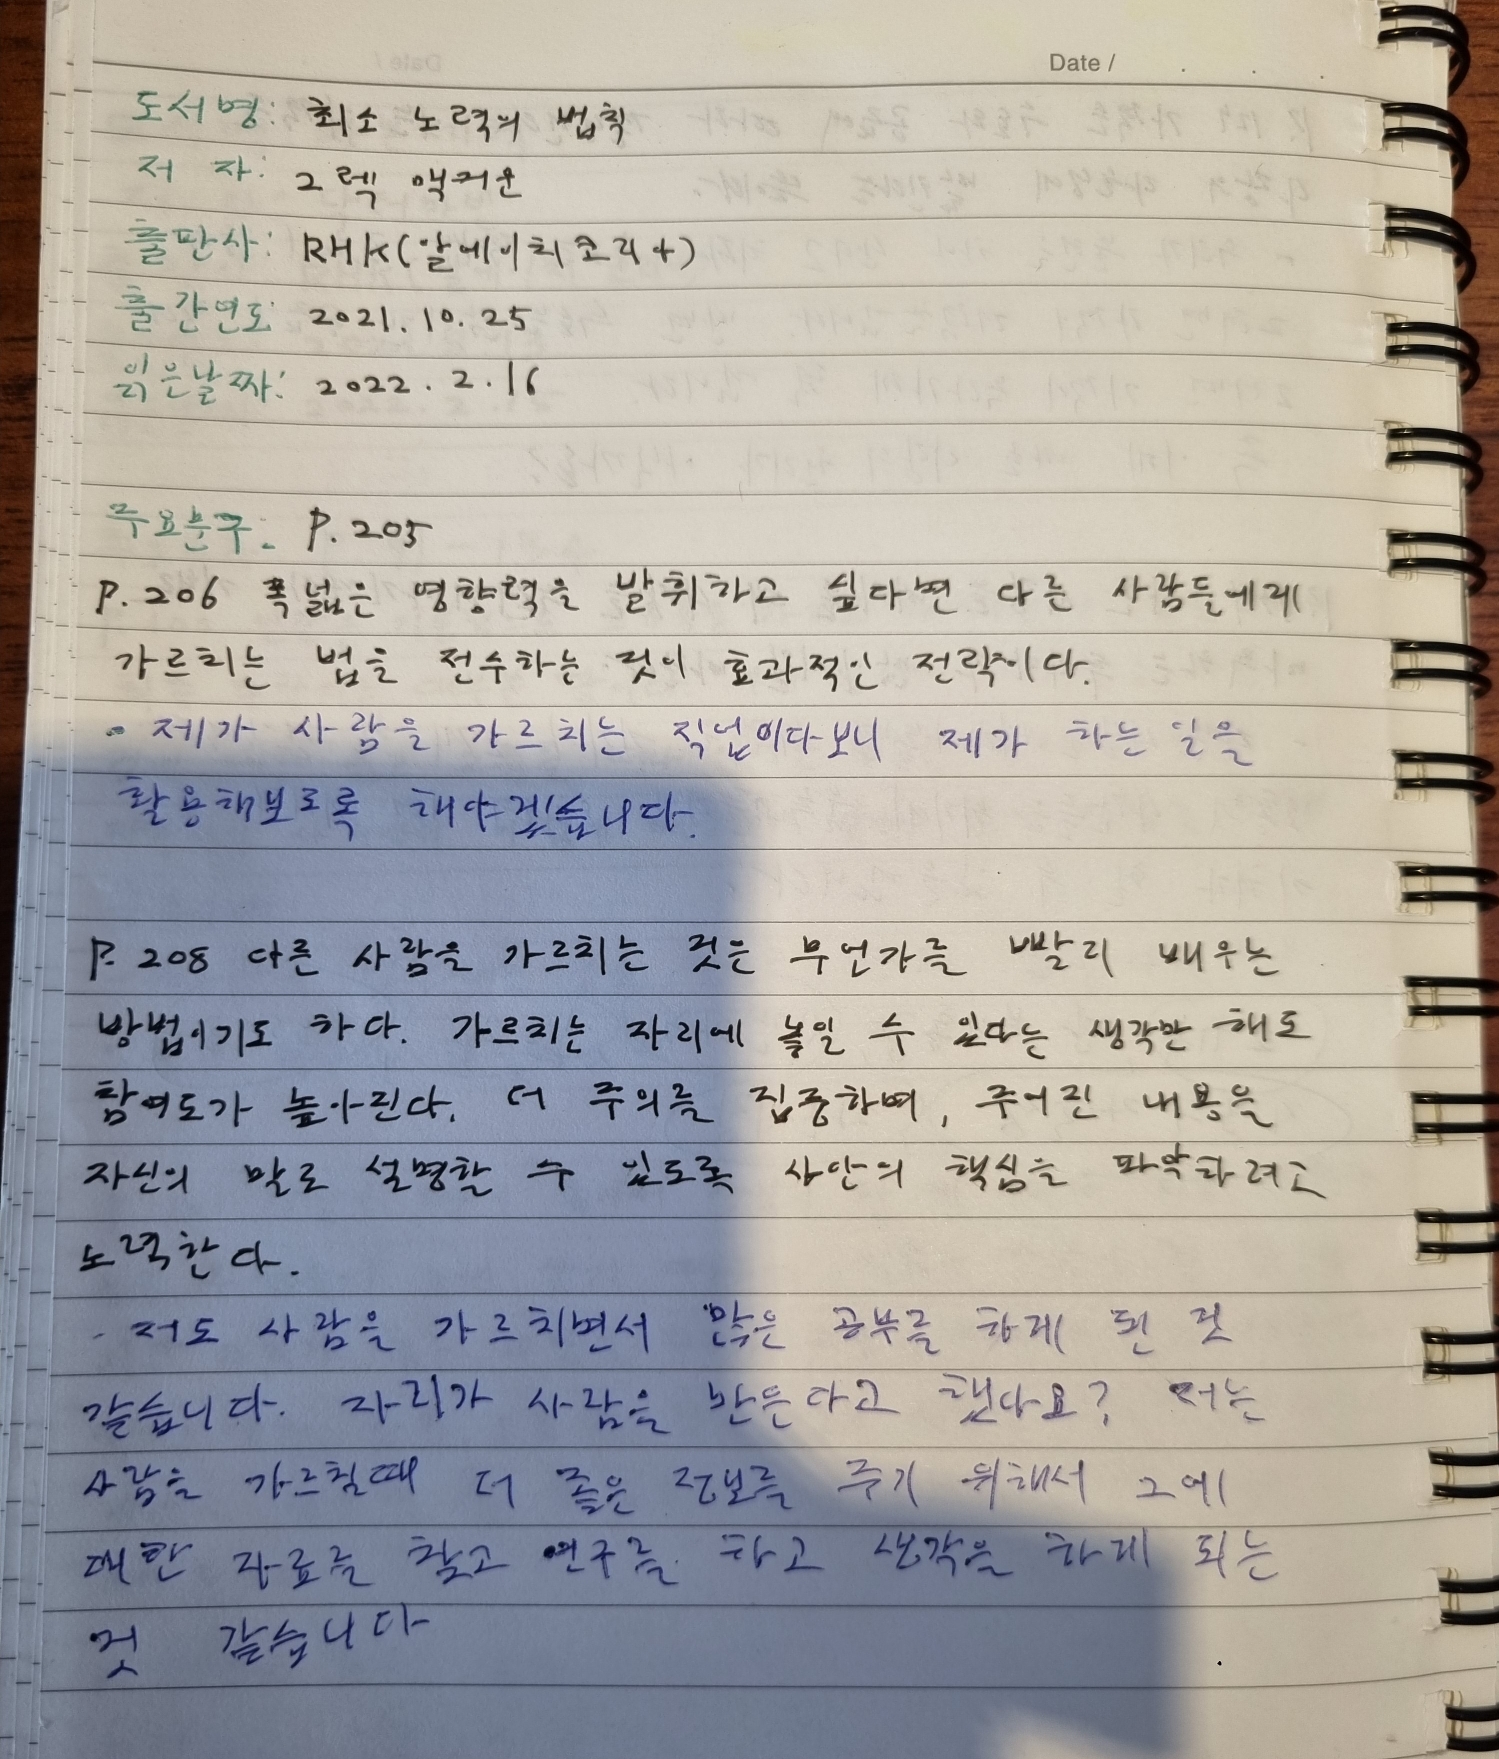 Date /
도서명: 최소 노력의 법칙
저 자: 그렉 맥커운
출판사: RHK(알에이치코리아)
출간연도: 2021.10.25
읽은날짜: 2022.2.16
주요문구: P.205
P.206 폭넓은 영향력을 발휘하고 싶다면 다른 사람들에게
가르치는 법을 전수하는 것이 효과적인 전략이다.
· 제가 사람을 가르치는 직업이다보니 제가 하는 일을
활용해보도록 해야겠습니다.
P.208 다른 사람을 가르치는 것은 무언가를 빨리 배우는
방법이기도 하다. 가르치는 자리에 놓일 수 있다는 생각만 해도
참여도가 높아진다. 더 주의를 집중하며, 주어진 내용을
자신의 말로 설명할 수 있도록 사안의 핵심을 파악하려고
노력한다.
· 저도 사람을 가르치면서 많은 공부를 하게 된 것
같습니다. 자리가 사람을 만든다고 했나요? 저는
사람을 가르칠때 더 좋은 정보를 주기 위해서 그에
대한 자료를 찾고 연구를 하고 생각을 하게 되는
것 같습니다